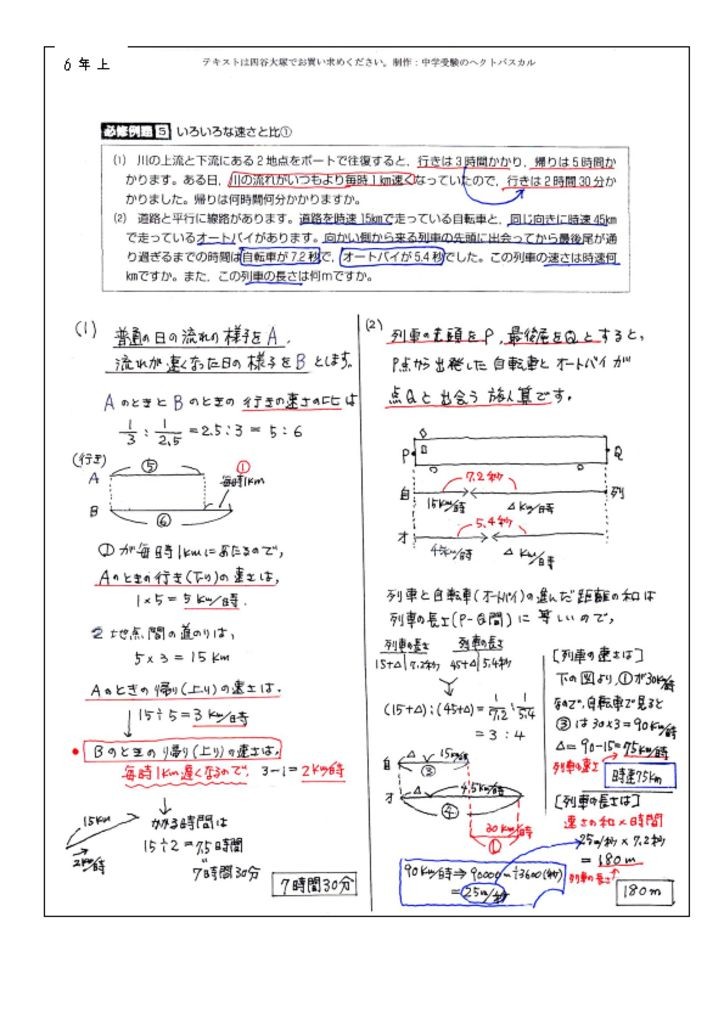 6年上
テキストは四谷大塚でお買い求めください。制作:中学受験のヘクトパスカル
必修例題 5 いろいろな速さと比①
(1) 川の上流と下流にある2地点をボートで往復すると、行きは3時間かかり、帰りは5時間か
かります。ある日、川の流れがいつもより毎時1km速くなっていたので、行きは2時間30分か
かりました。帰りは何時間何分かかりますか。
(2) 道路と平行に線路があります。道路を時速15kmで走っている自転車と、同じ向きに時速45km
で走っているオートバイがあります。向かい側から来る列車の先頭に出会ってから最後尾が通
り過ぎるまでの時間は自転車が7.2秒で、オートバイが5.4秒でした。この列車の速さは時速何
kmですか。また、この列車の長さは何mですか。
(1) 普通の日の流れの様子をA、
流れが速くなった日の様子をBとします。
AのときとBのときの行きの速さの比は
1/3 : 1/2.5 = 2.5:3 = 5:6
(行き) ⑤ ①
A 毎時1km
B
⑥
①が毎時1kmにあたるので、
Aのときの行き(下り)の速さは、
1×5=5km/時.
2地点間の道のりは、
5×3=15km
Aのときの帰り(上り)の速さは.
15÷5=3km/時
Bのときの帰り(上り)の速さは,
毎時1km遅くなるので、3-1=2km/時
15km
2km/時
かかる時間は
15÷2=7.5時間
7時間30分
7時間30分
(2) 列車の先頭をP、最後尾をQとすると、
P点から出発した自転車とオートバイが
点Qと出会う旅人算です。
P Q
7.2秒
自 列
15km/時 △km/時
5.4秒
オ
45km/時 △km/時
列車と自転車(オートバイ)の進んだ距離の和は
列車の長さ(P-Q間)に等しいので、
列車の長さ 列車の長さ
15+△ 7.2秒 45+△ 5.4秒
(15+△):(45+△)=1/7.2:1/5.4
=3:4
△ 15km/時
自 ③
△ 45km/時
オ
④
30km/時
①
90km/時⇒90000m÷3600(秒)
=25m/秒
[列車の速さは]
下の図より、①が30km/時
なので、自転車で見ると
③は30×3=90km/時
△=90-15=75km/時
列車の速さ
時速75km
[列車の長さは]
速さの和×時間
25m/秒×7.2秒
=180m
列車の長さ
180m